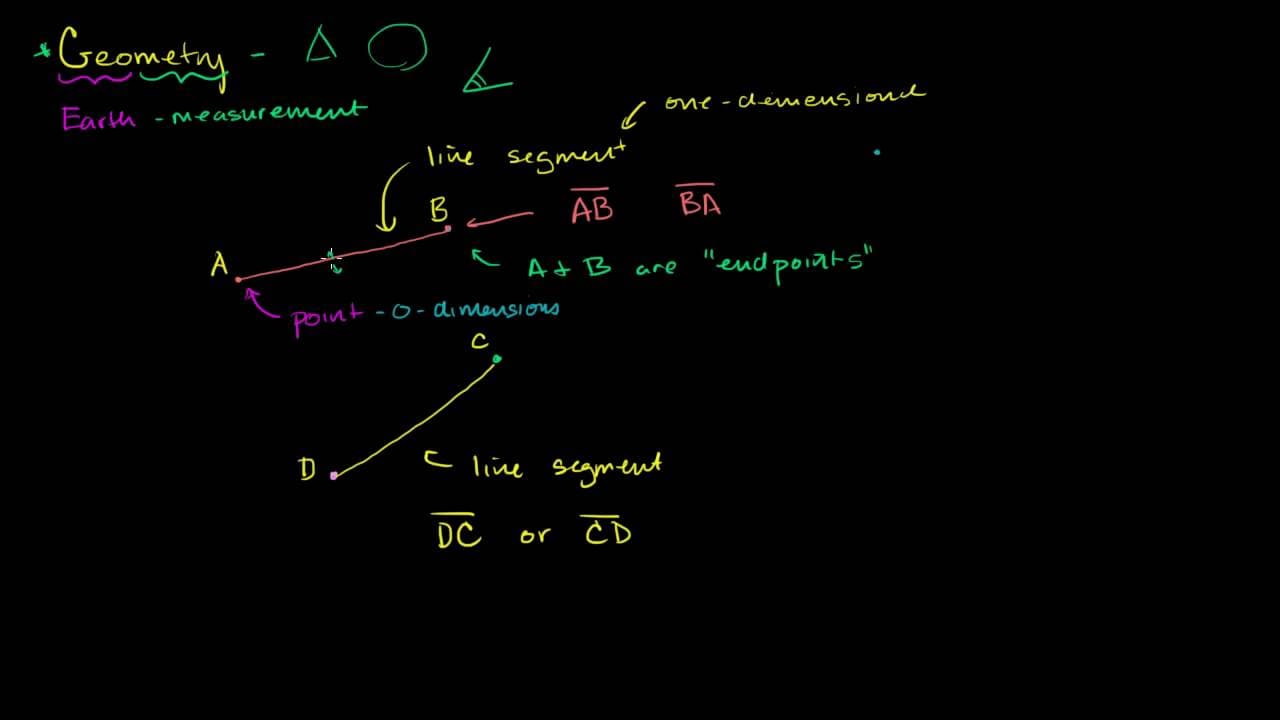 * Geometry -
Earth - measurement
one-dimensional
line segment
B
A̅B̅ B̅A̅
A
A + B are "endpoints"
point - 0 - dimensions
C
D
line segment
D̅C̅ or C̅D̅